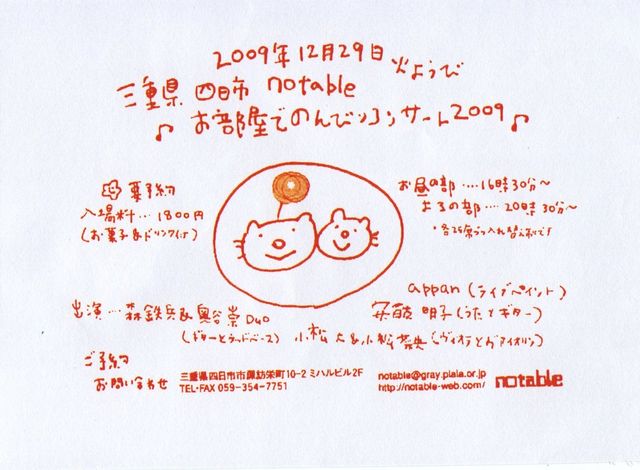 2009年12月29日 火ようび
三重県 四日市 notable
♪ お部屋でのんびりコンサート2009 ♪
要予約
入場料…1800円
(お菓子&ドリンク付)
お昼の部……16時30分〜
よるの部……20時30分〜
*各25席づつ入れ替え制です
appan(ライブペイント)
出演…森鉄兵&奥谷崇Duo
(ギターとウッドベース)
安藤明子(うたとギター)
小松大&小松菜央(ヴィオラとヴァイオリン)
ご予約
お問い合わせ
三重県四日市市諏訪栄町10-2 ミハルビル2F
TEL・FAX 059-354-7751
notable@gray.plala.or.jp
http://notable-web.com/
notable